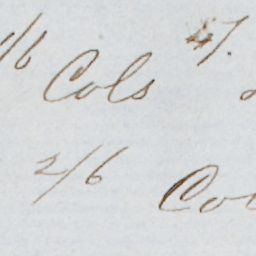 /6 Cols 4/.
2/6 Co